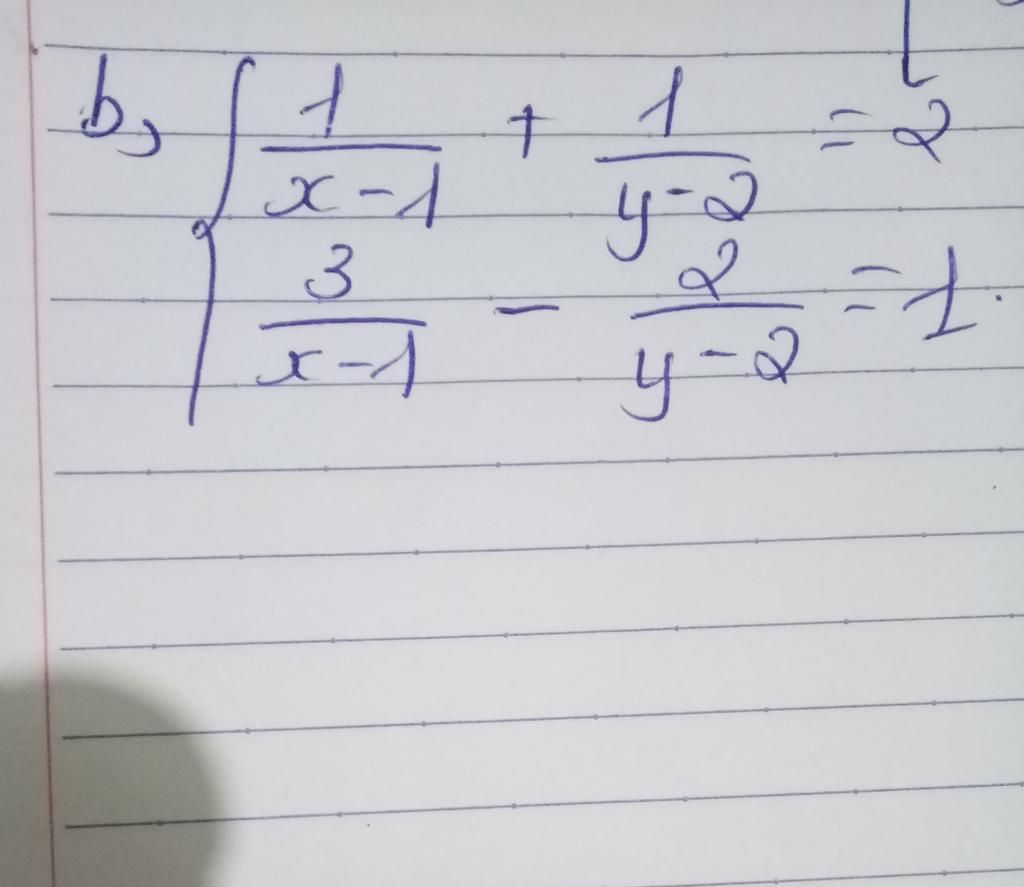 b, { 1/(x-1) + 1/(y-2) = 2
3/(x-1) - 2/(y-2) = 1.